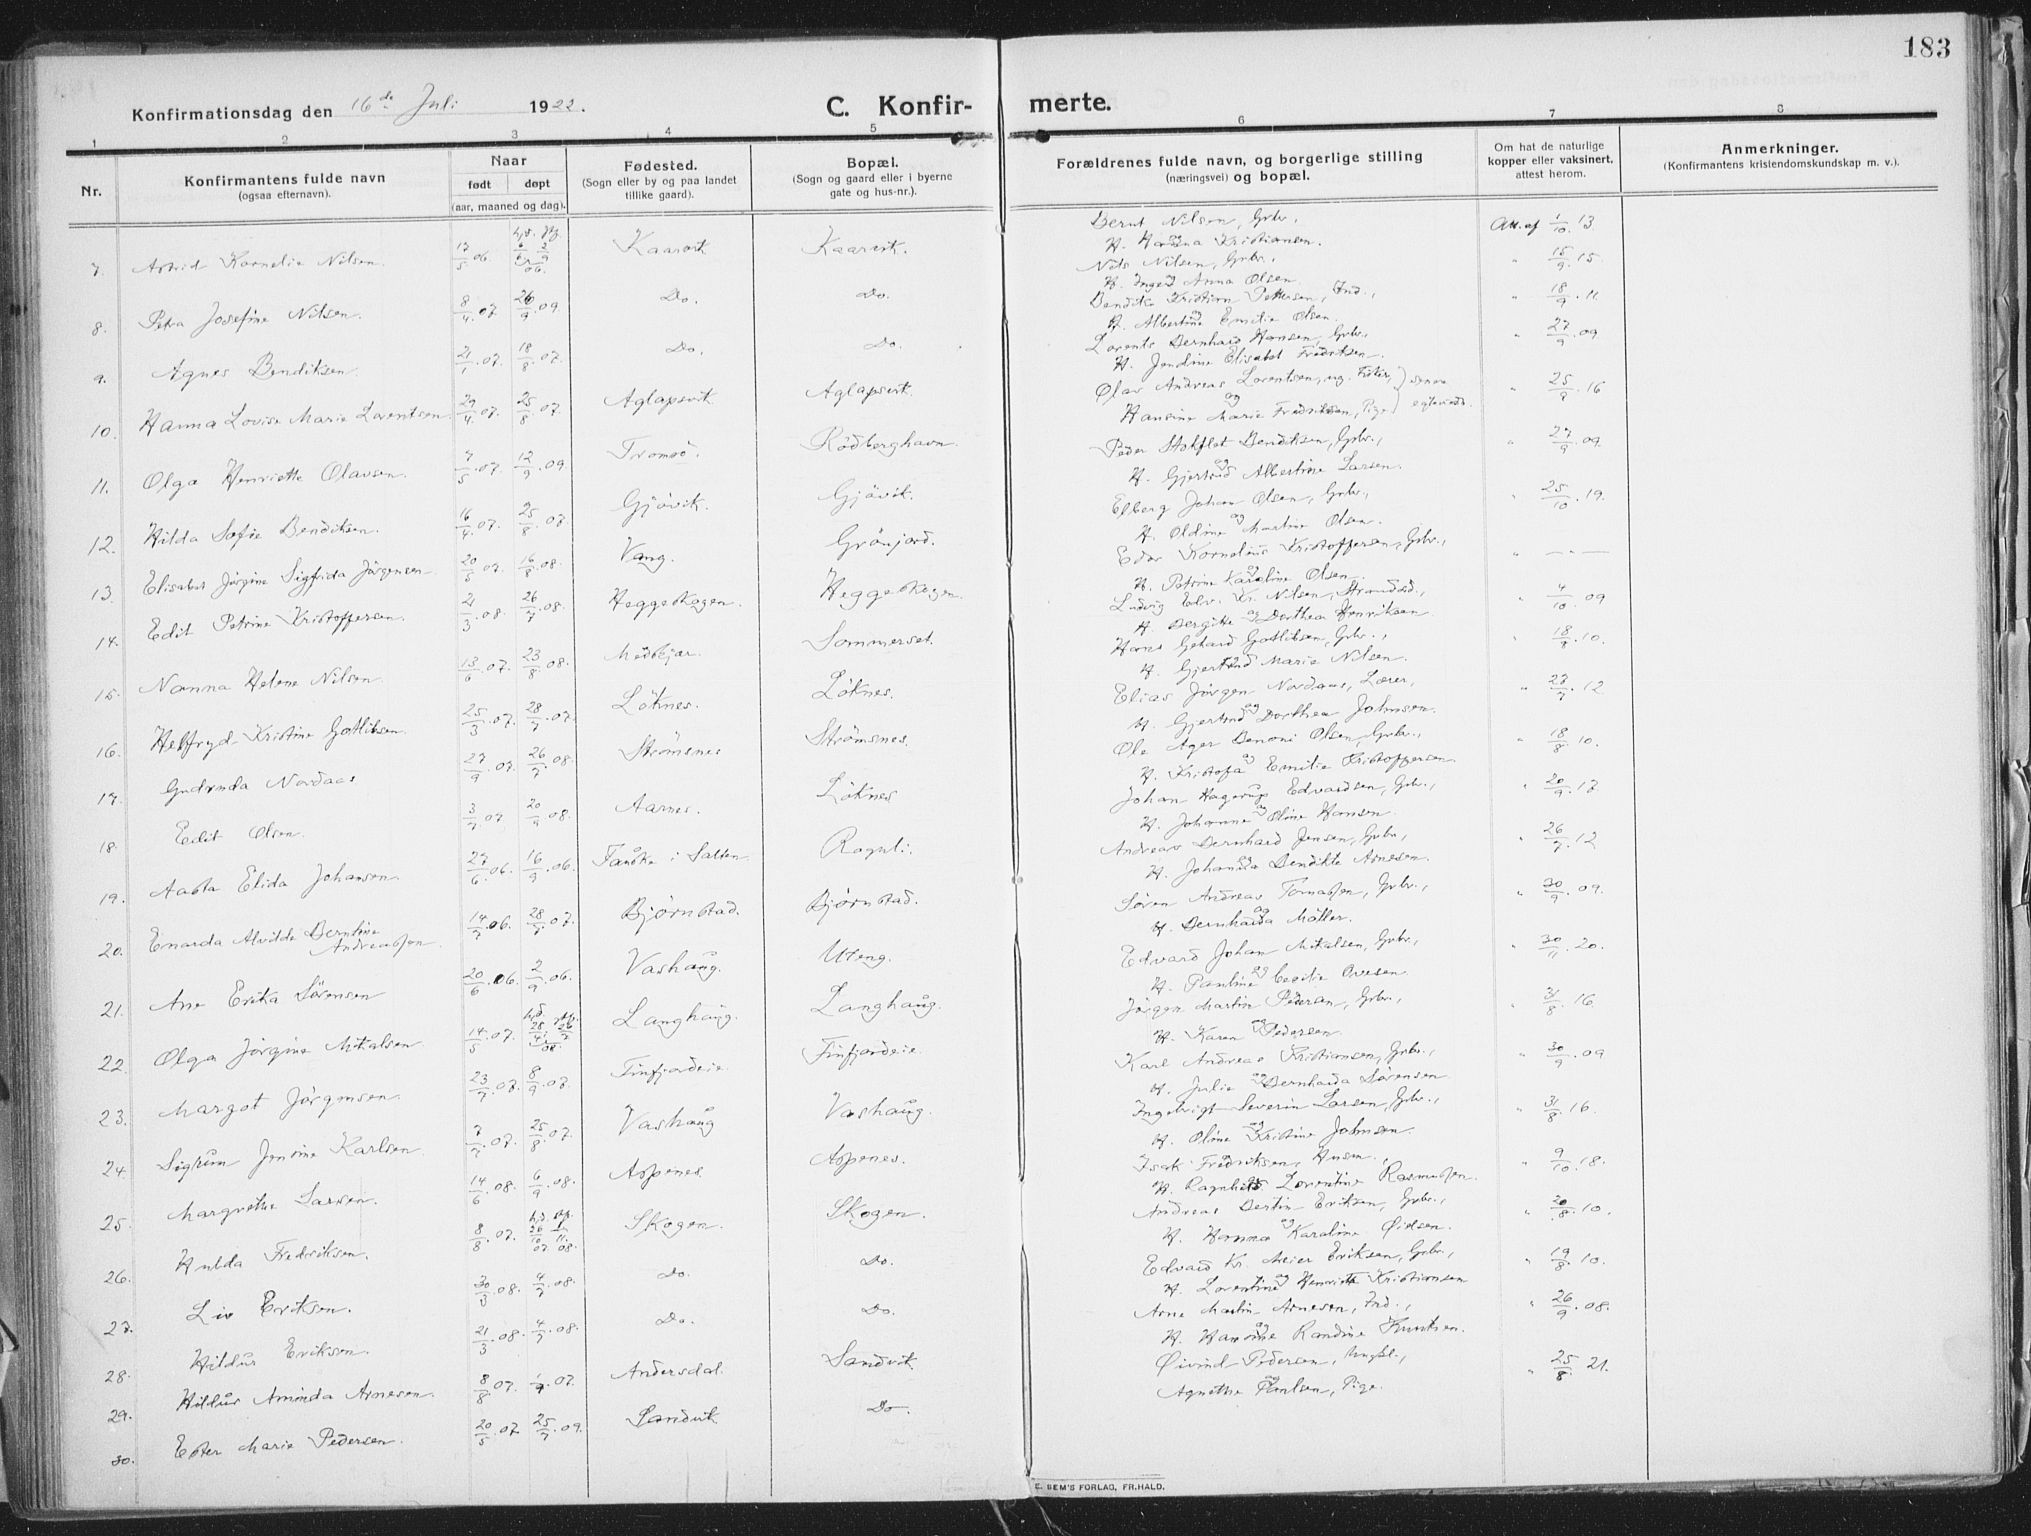 183
Konfirmationsdag den 16de Juli 1922.
C. Konfirmerte.
1 2 3 4 5 6 7 8
Nr.
Konfirmantens fulde navn
(ogsaa efternavn).
Naar
født døpt
(aar, maaned og dag).
Fødested.
(Sogn eller by og paa landet
tillike gaard).
Bopæl.
(Sogn og gaard eller i byerne
gate og hus-nr.).
Forældrenes fulde navn, og borgerlige stilling
(næringsvei) og bopæl.
Om hat de naturlige
kopper eller vaksinert,
attest herom.
Anmerkninger.
(Konfirmantens kristendomskundskap m. v.).
7. Astrid Kornelie Nilsen. 17/5 06. Kaarvik Kaarvik. Bernt Nilsen, Grbr., og H. Hansina Kristiansen. Att. af 1/10 13.
8. Petra Josefine Nilsen. 8/4.07 26/9.09 Do. Do. Nils Nilsen, Grbr., og H. Inger Anna Olsen " 15/9.15
9. Agnes Bendiksen 21/1.07. 18/8.07. Do. Do. Bendik Kristian Pettersen, Ind., og H. Albertine Emilie Olsen. " 18/9.11.
10. Hanna Lovise Marie Lorentsen 29/4.07. 25/8.07 Aglapsvik Aglapsvik. Lorents Bernhard Hansen, Grbr., H. Jendine Elisabet Fredriksen. " 27/9.09
11. Olga Henriette Olavsen. 7/5.07. 12/9.09 Tromsö. Rödberghavn. Olav Andreas Lorentsen, ug. Fisker, og Hansine Marie Fredriksen, Pige } senere egteviede. " 25/8.16
12. Hilda Sofie Bendiksen. 16/4.07. 25/8.07 Gjövik. Gjövik. Peder Stokflet Bendiksen, Grbr., og H. Gjertrud Albertine Larsen. " 27/9.09.
13. Elisabet Jörgine Sigfrida Jörgensen 20/5 07. 16/8.08. Vang. Grönjord. Elberg Johan Olsen, Grbr., og H. Oldine Martine Olsen. " 25/10.19.
14. Edit Petrine Kristoffersen. 21/3.08. 26/7.08. Heggeskogen. Heggeskogen. Edor Kornelius Kristoffersen, Grbr., og H. Petrine Karoline Olsen. " — - —
15. Nanna Helene Nilsen 13/6.07. 23/8.08. Medkjær. Sommerset. Ludvig Edv. Kr. Nilsen, Strandsd., og H. Bergitte Dorthea Henriksen " 4/10.09
16. Helfryd Kristine Gotlibsen. 25/3.07. 28/7.07. Löknes. Löknes. Hans Gehard Gotlibsen, Grbr., H. Gjertrud Marie Nilsen. " 18/8.10.
17. Gudrunda Nordaas 27/9.07. 26/7.08. Strömsnes Strömsnes. Elias Jörgen Nordaas, Lærer, og H. Gjertrud Dorthea Johnsen. " 27/7.12
18. Edit Olsen. 3/7.07. 20/9 08. Aarnes. Löknes Ole Ager Benoni Olsen, Grbr., og H. Kristofa Emilie Kristoffersen " 18/8 10.
19. Aasta Elida Johansen. 27/6.06. 16/9.06. Fauske i Salten. Rognli. Johan Hagerup Edvardsen, Grbr., og H. Johanne Oline Hansen. " 20/9.17.
20. Enarda Alvilde Berntine Andreassen. 14/7 06. 28/7.07. Björnstad. Björnstad. Andreas Bernhard Jensen, Grbr., og H. Johanna Bendikte Arnesen. " 26/7.12
21. Ane Erika Sörensen 20/6.06. 2/9.06. Vashaug. Uteng. Sören Andreas Tomassen, Grbr., og H. Bernharda Möller. " 30/9.09.
22. Olga Jörgine Mikalsen 14/5.07. Langhaug. Langhaug. Edvard Johan Mikalsen, Grbr., og H. Pauline Cecilie Ovesen " 30/11.20.
23. Margot Jörgensen. 23/7.07. 8/9.07. Finfjordeie. Finfjordeie. Jörgen Martin Pedersen, Grbr., og H. Karen Pedersen. " 31/8.16.
24. Sigrun Jensine Karlsen. 7/7.07. 25/8.07. Vashaug Vashaug. Karl Andreas Kristiansen, Grbr., og H. Julie Bernharda Sörensen. " 30/9.09
25. Margrethe Larsen. 14/6.08. 6/9.08. Aspenes. Aspenes. Ingebrigt Severin Larsen, Grbr., og H. Oline Kristine Johnsen. " 31/8.16.
26. Hulda Fredriksen. 8/8.07. Skogen. Skogen. Isak Fredriksen, Husm., H. Ragnhild Lorentine Rasmussen. " 9/10.18.
27. Liv Eriksen. 30/3.08. 4/7.08. Do. Do. Andreas Bertin Eriksen, Grbr., og H. Hanna Karoline Öidsen. " 20/8.10.
28. Hildur Eriksen. 21/3.08. 4/7.08. Do. Do. Edvard Kr. Meier Eriksen, Grbr., og H. Lorentine Henriette Kristiansen " 19/8.10.
29. Hildur Aminda Arnesen. 8/8 07. Andersdal. Sandvik Arne Martin Arnesen, Ind., og H. Hansine Randine Knutsen. " 26/9.08.
30. Ester Marie Pedersen. 20/5.07 25/7.09. Sandvik Do. Öivind Pedersen, Ungkl., og Agnethe Paulsen, Pige. " 25/8 21.
E. SEM'S FORLAG, FR.HALD.